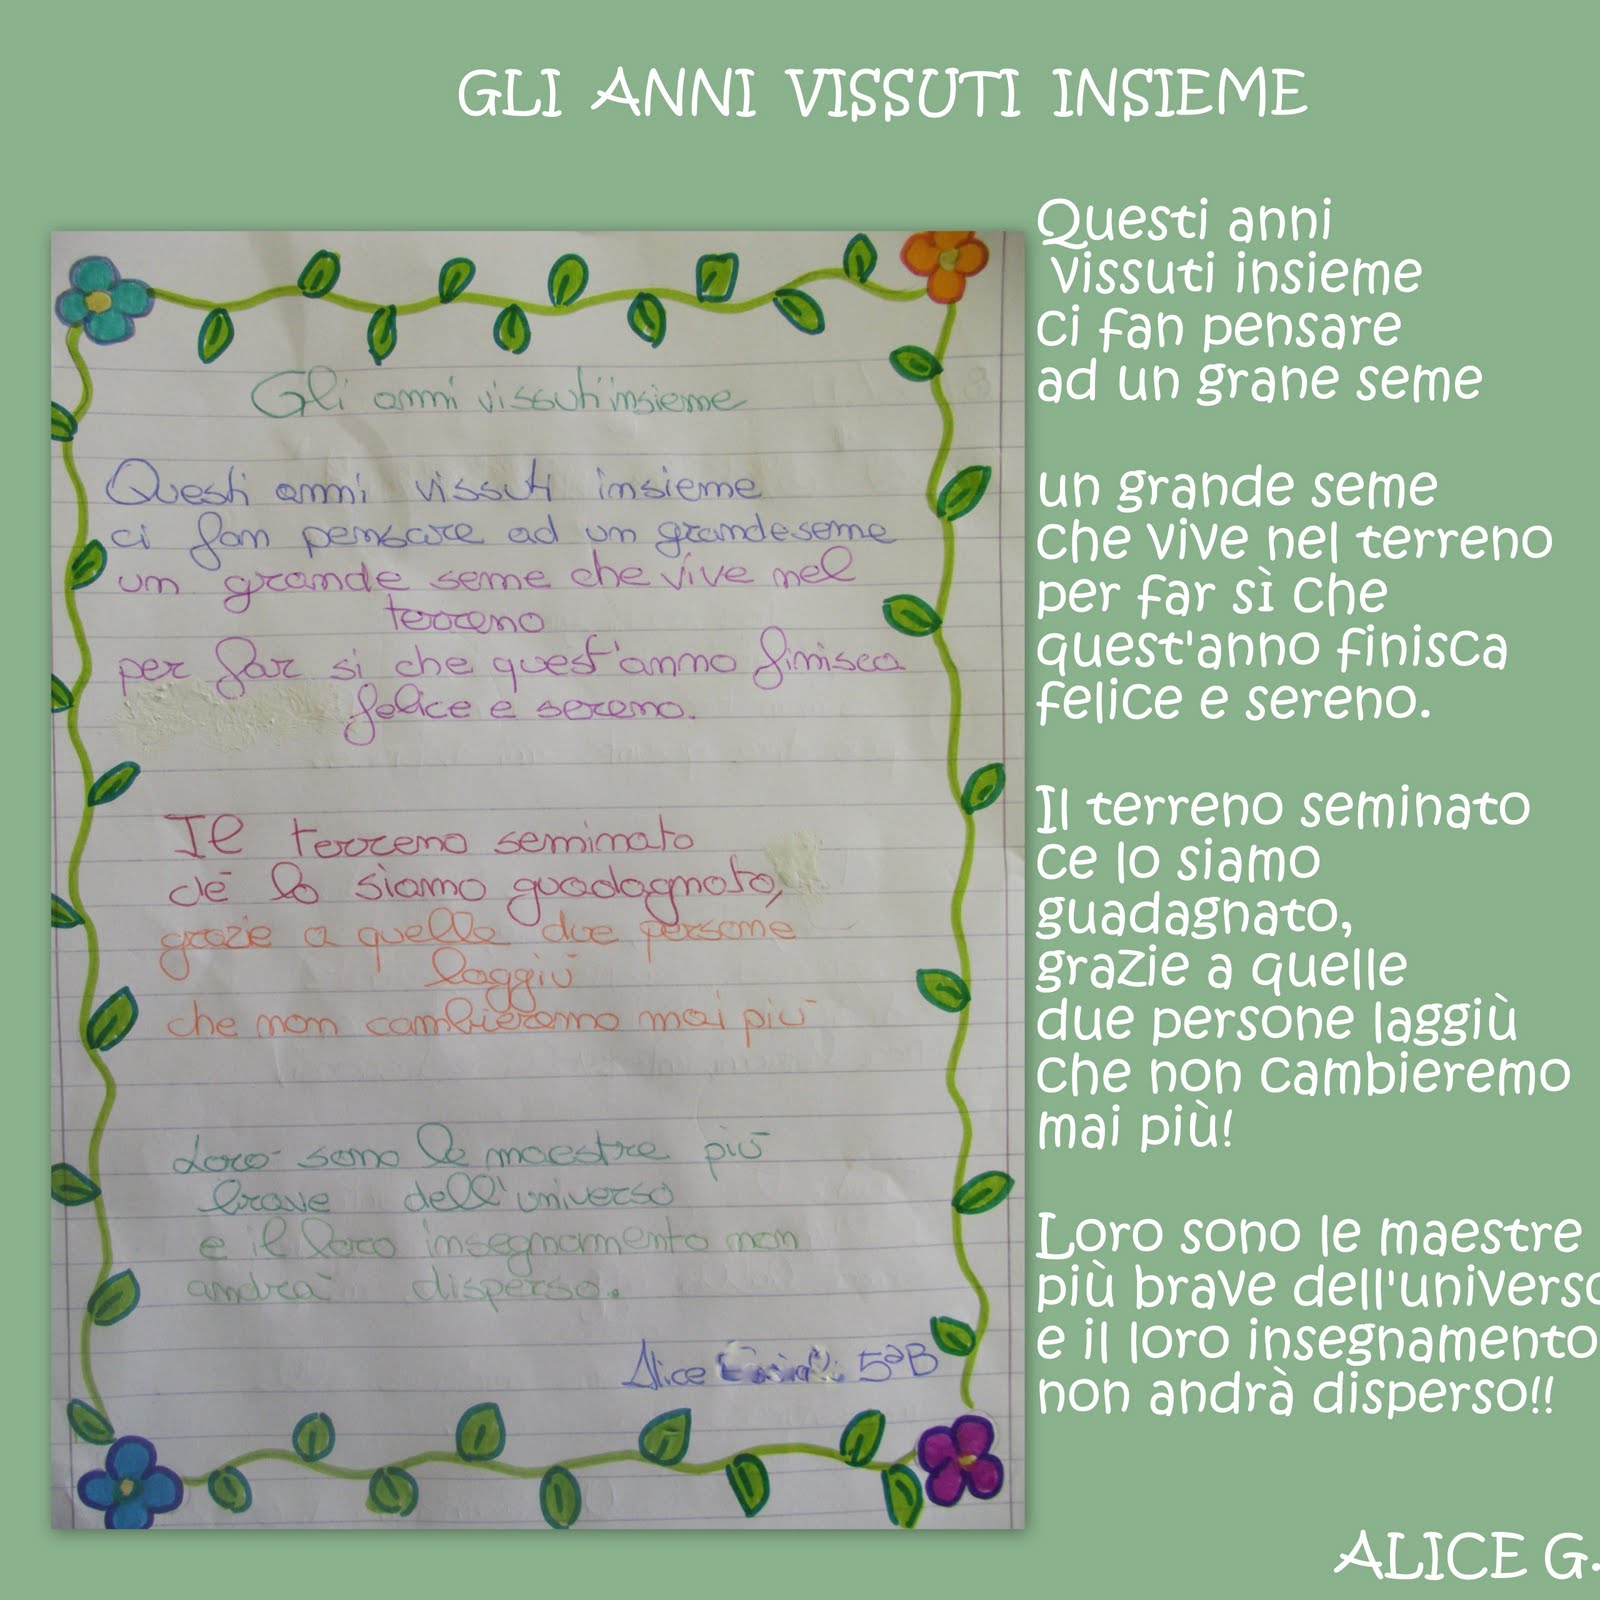 GLI ANNI VISSUTI INSIEME
Gli anni vissuti insieme
Questi anni vissuti insieme
ci fan pensare ad un grande seme
un grande seme che vive nel
terreno
per far si che quest'anno finisca
felice e sereno.
Il terreno seminato
cè lo siamo guadagnato,
grazie a quelle due persone
laggiù
che non cambieremo mai più
Loro sono le maestre più
brave dell'universo
e il loro insegnamento non
andrà disperso.
Alice 5ªB
Questi anni
vissuti insieme
ci fan pensare
ad un grane seme
un grande seme
che vive nel terreno
per far sì che
quest'anno finisca
felice e sereno.
Il terreno seminato
ce lo siamo
guadagnato,
grazie a quelle
due persone laggiù
che non cambieremo
mai più!
Loro sono le maestre
più brave dell'universo
e il loro insegnamento
non andrà disperso!!
ALICE G.